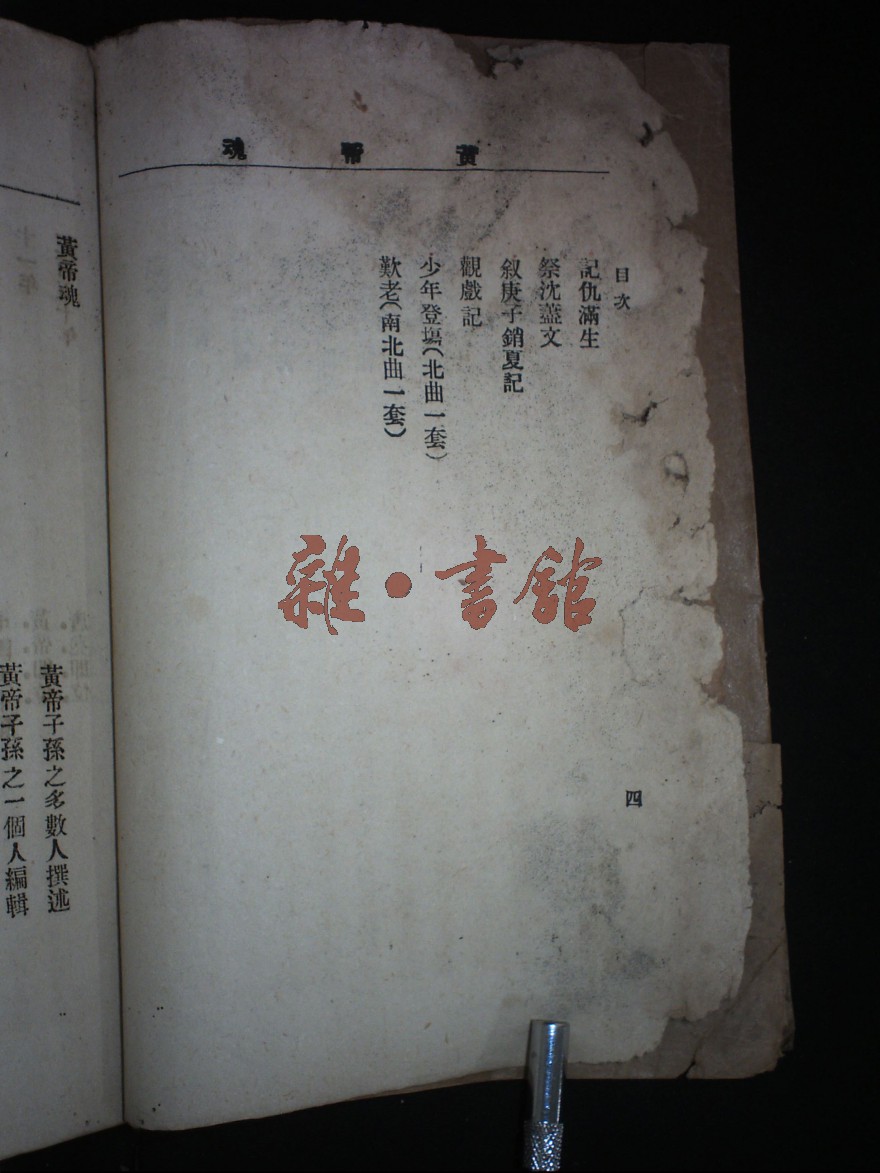 黃帝魂
目次
記仇滿生
祭沈藎文
敘庚子銷夏記
觀戲記
少年登塲(北曲一套)
歎老(南北曲一套)
四
黃帝魂
黃帝子孫之多數人撰述
黃帝子孫之一個人編輯
雜·書館